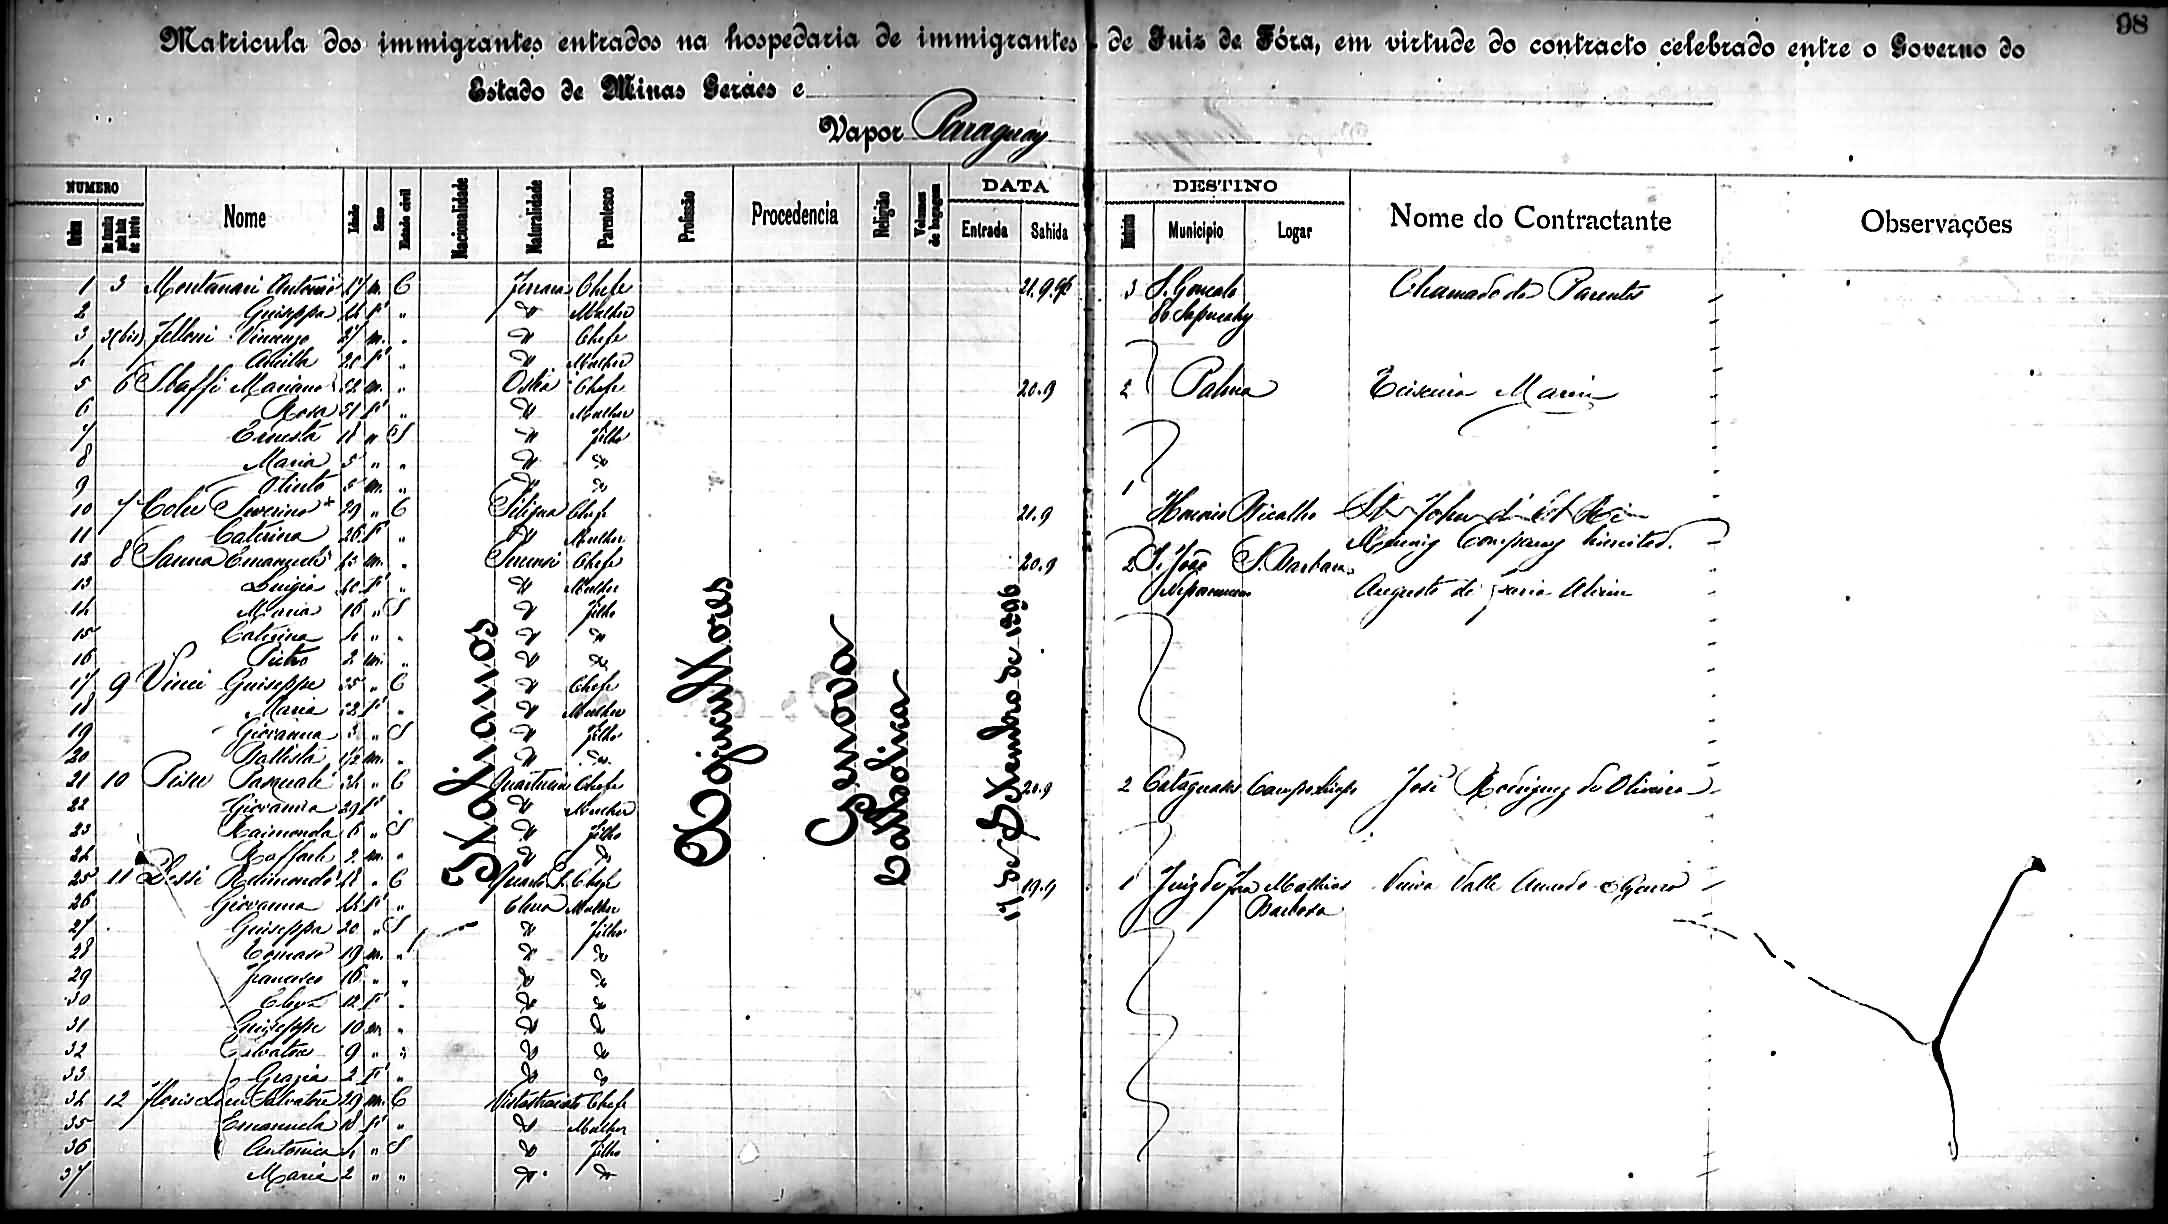 98
Matricula dos immigrantes entrados na hospedaria de immigrantes de Juiz de Fóra, em virtude do contracto celebrado entre o Governo do
Estado de Minas Geraes e
Vapor Paraguay
NUMERO DATA DESTINO
Ordem Nome Idade Sexo Estado civil Nacionalidade Naturalidade Parentesco Profissão Procedencia Religião Volumes de bagagem Entrada Sahida Municipio Logar Nome do Contractante Observações
Italianos Agricultores Genova Catholica 17 de Setembro de 1896
1 3 Montanari Antonio m. C Ferrara Chefe 21.9.96 3 S. Gonçalo Chamado de Parentes
2 Guiseppa f. " " Mulher de Sapucahy
3 3(bis) Vincenzo m. " " Chefe
4 f. " " Mulher
5 6 Mariano 52 m. " Chefe 20.9 2 Palma Teixeira
6 Rosa 51 f. " " Mulher
7 Ernesta 18 " S " Filho
8 Maria 5 " " " "
9 Olinto 5 m. " " "
10 7 Severino 29 " C Siliqua Chefe 21.9 1 Honorio Bicalho St John d'El Rei
11 Caterina 26 f. " " Mulher Mining Company Limited.
12 8 Sanna Emanuele m. " Chefe 20.9 2 S. João S. Barbara
13 Luigia f. " " Mulher Nepomuceno Augusto de Faria
14 Maria 16 " S " Filho
15 Caterina 4 " " " "
16 Pietro 2 m. " " "
17 9 Vinci Guiseppe 35 " C " Chefe
18 Maria 32 f. " " Mulher
19 Giovanna 3 " S " Filho
20 Battista 1/2 m. " " "
21 10 Pasquale 34 " C Chefe 20.9 2 Cataguases Campo Limpo José Rodrigues de Oliveira
22 Giovanna 29 f. " " Mulher
23 Raimonda 6 " S " Filho
24 Raffaele 2 m. " " "
25 11 Dessi Raimondo 48 " C Quartu S. Chefe 19.9 1 Juiz de Fora Mathias Vieira Valle & Genro
26 Giovanna 44 f. " Elena Mulher Barbosa
27 Guiseppa 20 " S " Filho
28 Tomaso 19 m. " " "
29 Francesco 16 " " " "
30 12 f. " " "
31 Guiseppe 10 m. " " "
32 Salvatore 9 " " " "
33 Grazia 2 f. " " "
34 12 Floris Salvatore 29 m. C Chefe
35 Emanuela f. " " Mulher
36 Antonica 4 " S " Filho
37 Maria 2 " " " "